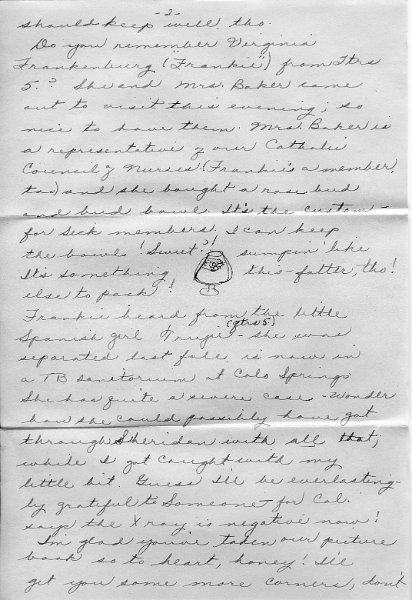 -2-
should keep well, tho.
Do you remember Virginia
Frankenburg ("Frankie") from Qtrs
5.? She and Mrs. Baker came
out to visit this evening; so
nice to have them. Mrs. Baker is
a representative of our Catholic
Council of Nurses (Frankie's a member,
too) and she bought a rose bud
and bud bowl. It's the custom-
for sick members. I can keep
the bowl! Sweet?! sumpin' like
It's something this-fatter, tho!
else to pack!
Frankie heard from the little
(qtrs 5)
Spanish girl - she was
separated last fall is now in
a TB sanitorium at Colo Springs
She has quite a severe case - wonder
how she could possibly have got
through Sheridan with all that,
while I got caught with my
little bit. Guess I'll be everlasting-
ly grateful to Someone - for Col.
says the Xray is negative now!
I'm glad you've taken our picture
book so to heart, honey! I'll
get you some more corners, don't